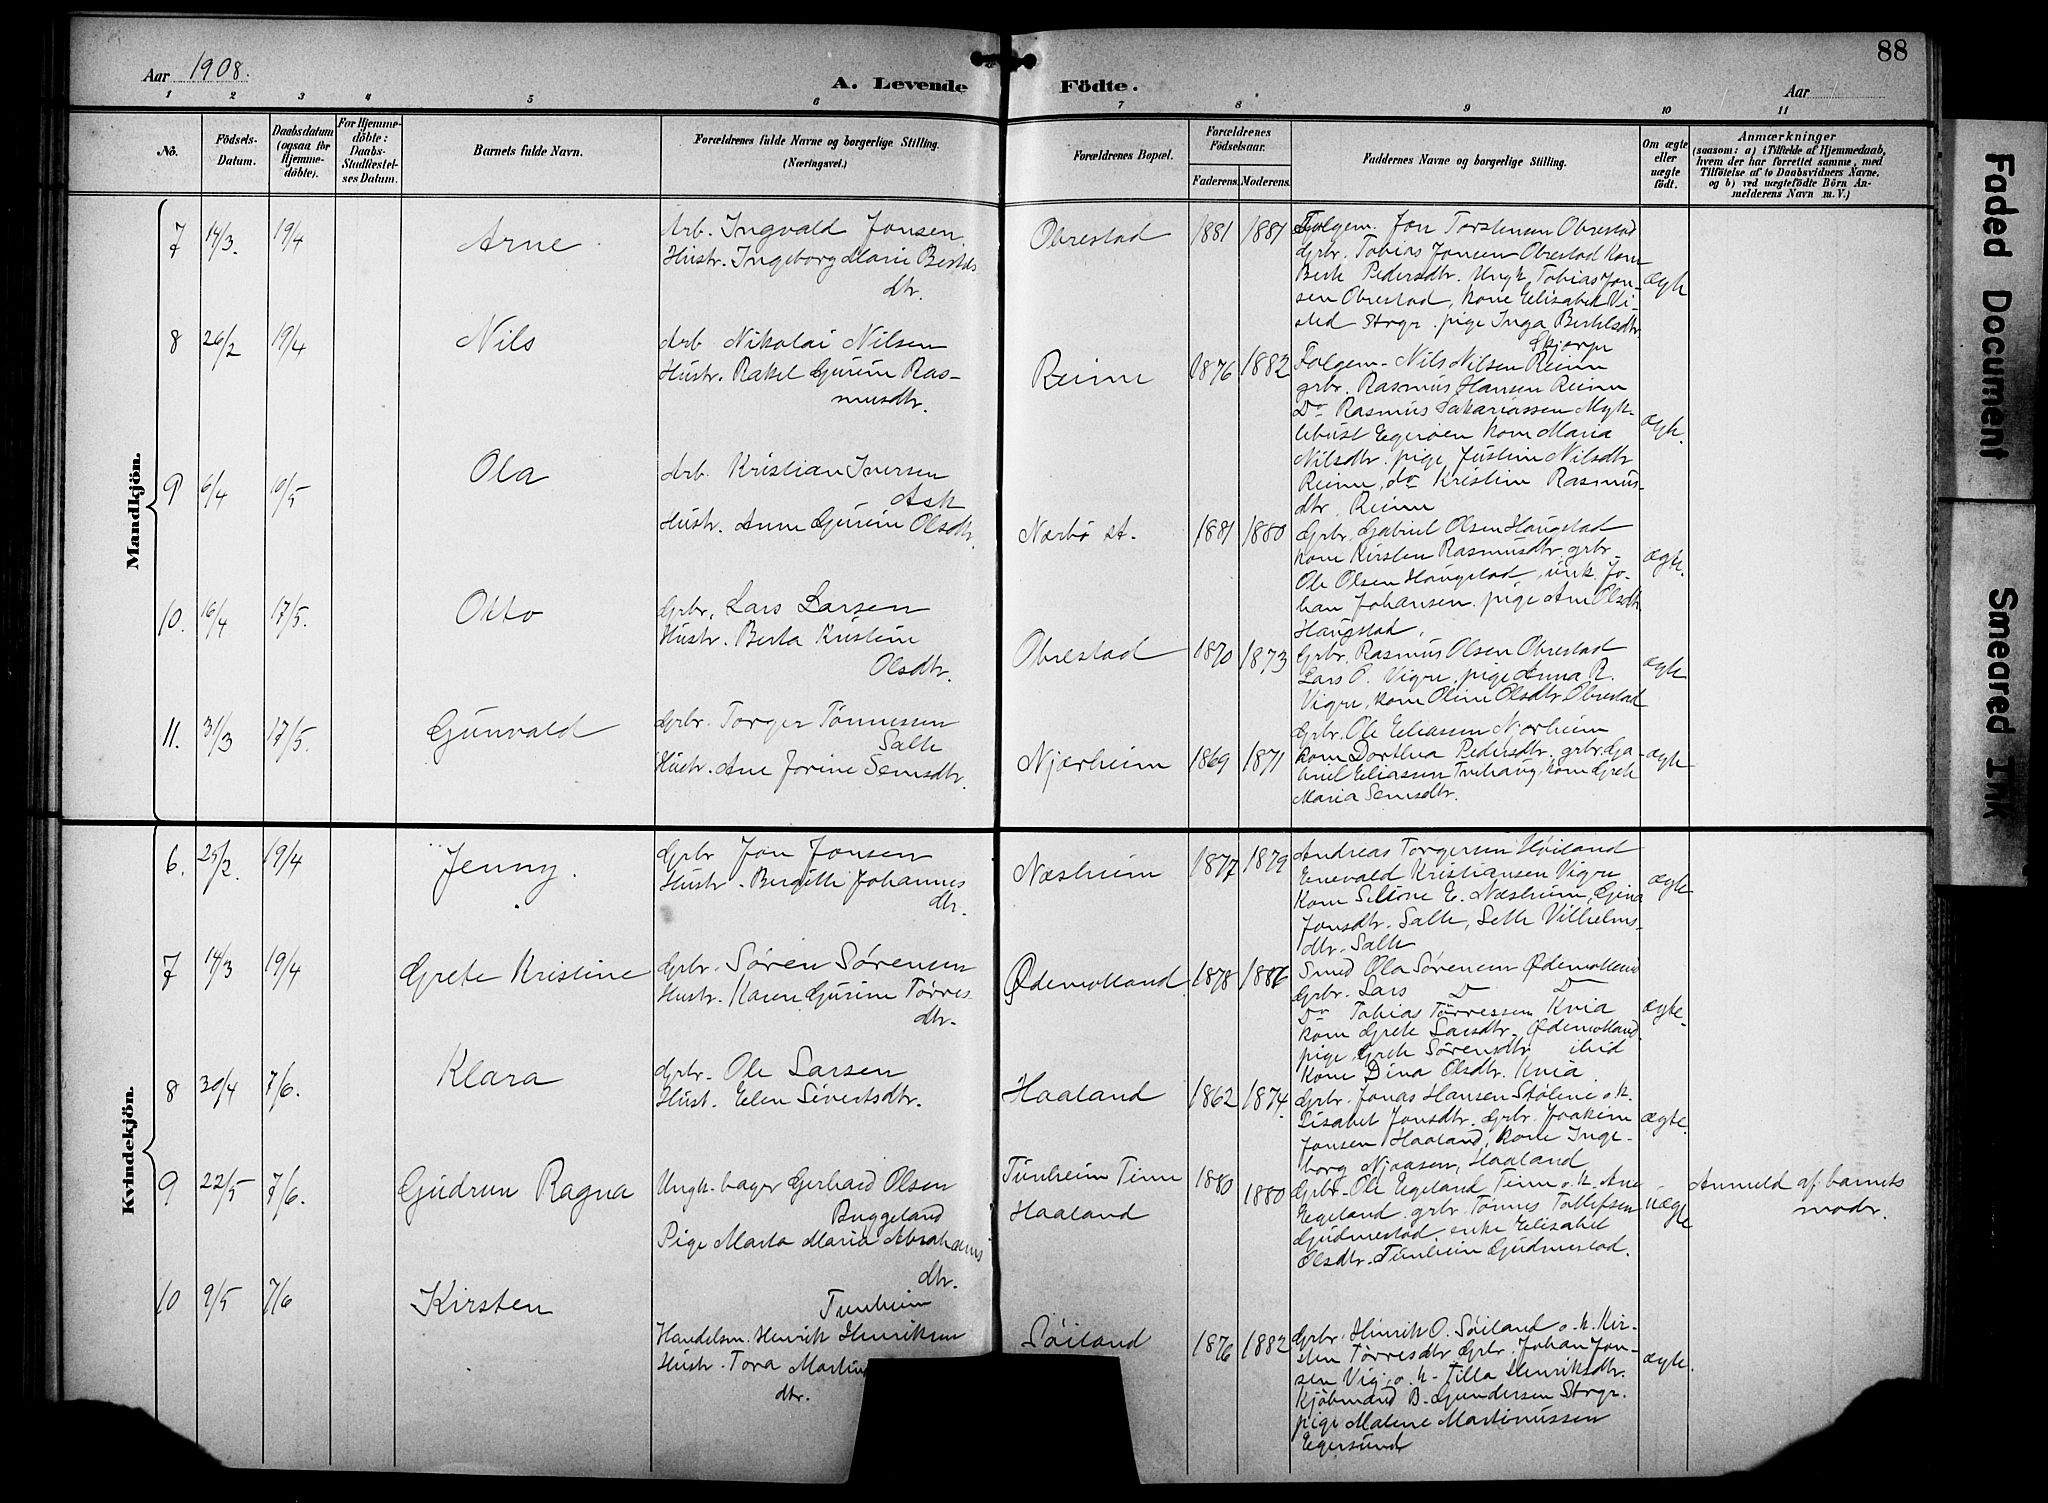 88
Aar 1908.
A. Levende Födte.
Aar
1 2 3 4 5 6 7 8 9 10 11
No.
Födsels-Datum.
Daabsdatum (ogsaa for Hjemmedöbte).
For Hjemmedöbte: Daabs-Stadfæstelses Datum.
Barnets fulde Navn.
Forældrenes fulde Navne og borgerlige Stilling. (Næringsvei.)
Forældrenes Bopæl.
Forældrenes Födselsaar.
Faderens. Moderens.
Faddernes Navne og borgerlige Stilling.
Om ægte eller uægte födt.
Anmærkninger
(saasom: a) i Tilfælde af Hjemmedaab, hvem der har forrettet samme, med Tilföielse af to Daabsvidners Navne, og b) ved uægtefödte Börn Anmelderens Navn m. V.)
Mandkjön.
7 14/3. 19/4 Arne
Arb. Ingvald Jonsen.
Hustr. Ingeborg Marie Bertels
dtr.
Obrestad 1881 1881
Folgem. Jon Torstensen Obrestad
Grbr. Tobias Jonsen Obrestad kone
Berte Pedersdtr. Ungk. Tobias Jon-
sen Obrestad, kone Elisabet Vi-
sted Stvgr. pige Inga Bertelsdtr.
Skjærpe
ægte
8 26/2 19/4 Nils
Arb. Nikolai Nilsen
Hustr. Rakel Gurine Ras-
musdtr.
Reime 1876 1882
Folgem. Nils Nilsen Reime
grbr. Rasmus Hansen Reime
Do Rasmus Sakariassen Myk-
lebust Egerøen kone Maria
Nilsdtr. pige Justine Nilsdtr
Reime, do Kristine Rasmus-
dtr. Reime
ægte.
9 6/4 10/5 Ola
Arb. Kristian Iversen
Ask
Hustr. Anne Gurine Olsdtr.
Nærbø st. 1881 1880
Grbr. Gabriel Olsen Haugstad
kone Kirsten Rasmusdtr. grbr.
Ole Olsen Haugstad, unk. Jo-
han Johansen. pige Ane Olsdtr
Haugstad.
ægte.
10. 16/4 17/5. Otto
Grbr. Lars Larsen
Hustr. Berta Kristine
Olsdtr.
Obrestad 1870 1873
Grbr. Rasmus Olsen Obrestad
Lars O. Vigre, pige Anna R.
Vigre, kone Oline Olsdtr. Obrestad
ægte
11. 31/3 17/5. Gunvald
Grbr. Torger Tønnessen
Salte
Hustr. Ane Jorine Semsdtr.
Njærheim 1869 1871
Grbr. Ole Eliassen Njærheim
kone Dorthea Pedersdtr. grbr. Ga-
briel Eliassen Tuehaug, kone Grete
Maria Semsdtr.
ægte
Kvindekjön.
6. 25/2. 19/4 Jenny.
Grbr Jon Jonsen
Hustr. Bergitte Johannes
dtr.
Næsheim 1877 1879
Andreas Torgersen Høiland
Enevald Kristiansen Vigre
Kone E. Næsheim, Gina
Jonsdtr. Salte, Sette Vilhelms-
dtr. Salte
ægte
7 14/3 19/4 Grete Kristine
Grbr. Søren Sørensen
Hustr. Karen Gurine Tørres
dtr.
Ødemotland 1878 1886
Smed Ola Sørensen Ødemotland
Grbr. Lars D D
Do Tobias Tørressen Kvia
kone Grete Larsdtr. Ødemotland
pige Grete Sørensdtr. ibid
kone Dina Olsdtr. Kvia
ægte.
8 30/4 7/6. Klara
Grbr. Ole Larsen
Hust. Elen Sivertsdtr.
Haaland 1862 1874.
Grbr. Jonas Hansen Stølene o.k.
Lisabet Jonsdtr. Grbr. Joakim
Jonsen Haaland, kone Inge-
borg Njaasen, Haaland
ægte.
9 22/5 7/6. Gudrun Ragna
Ungk. bager Gerhard Olsen
Buggeland
Pige Marta Maria Abrahams
dtr.
Tunheim
Tunheim Time 1880
Haaland 1880
Grbr. Ole Egeland Time o.k. Ane
Egeland. grbr. Tønnes Tollefsen
Gudmestad, enke Elisabet
Olsdtr. Tunheim Gudmestad.
uægte
Anmeld af barnets
moder.
10 9/5 7/6 Kirsten
Handelsm. Henrik Henriksen
Hustr. Tora Martin
dtr.
Søiland 1876 1882
Grbr. Henrik O. Søiland o.k. Kir-
sten Tørresdtr Grbr. Johan Jon-
sen Vig, o.k. Tilla Henriksdtr.
Kjøbmand B. Gundersen Stvgr.
pige Malene Martinussen
Egersund
ægte.
Faded Document
Smeared Ink